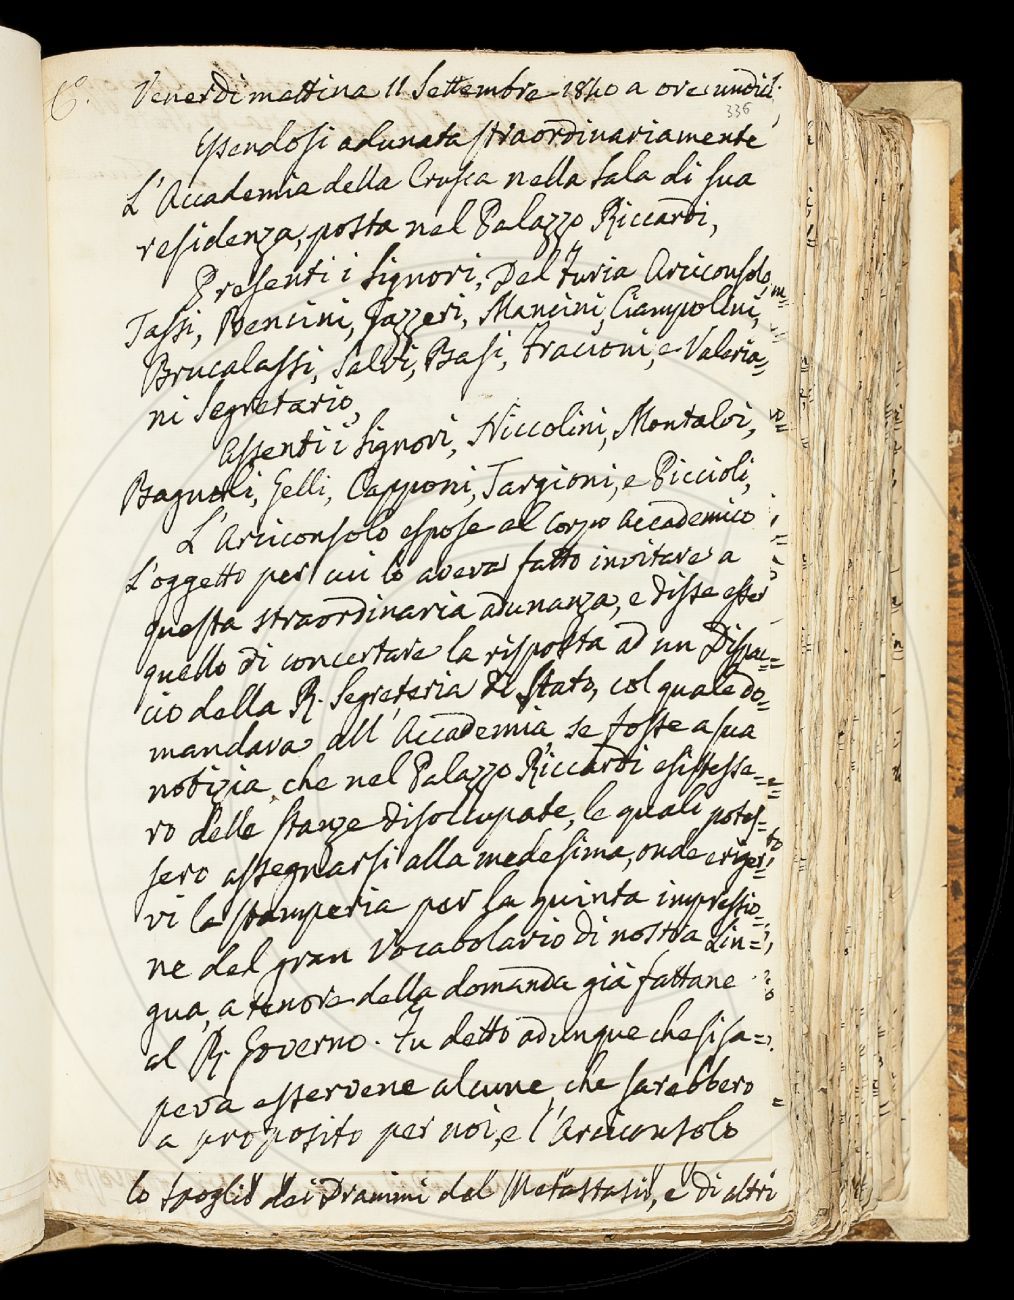 Venerdì mattina 11 Settembre 1840 a ore undici.
336
Essendosi adunata straordinariamente
L'Accademia della Crusca nella Sala di sua
residenza, posta nel Palazzo Riccardi,
Presenti i Signori, Del Furia Arciconsolo,
Tassi, Bencini, Gazzeri, Mancini, Ciampolini,
Brucalassi, Salvi, Basi, Fracioni, e Valeria=
ni Segretario,
Assenti i Signori, Niccolini, Montalvi,
Bagnoli, Gelli, Capponi, Targioni, e Piccioli,
L'Arciconsolo espose al corpo accademico
L'oggetto per cui lo aveva fatto invitare a
questa straordinaria adunanza, e disse esser
quello di concertare la risposta ad un Dispac=
cio della R. Segreteria di Stato, col quale do=
mandava all'Accademia se fosse a sua
notizia che nel Palazzo Riccardi esistesse=
ro delle stanze disoccupate, le quali potes=
sero assegnarsi alla medesima, onde eriger=
vi la stamperia per la quinta impressio=
ne del gran Vocabolario di nostra Lin=
gua, a tenore della domanda già fattane
al R. Governo. Fu detto adunque che si sa=
peva esservene alcune, che sarebbero
a proposito per noi, e l'Arciconsolo
lo spoglio dei Drammi del Metastasio, e di altri